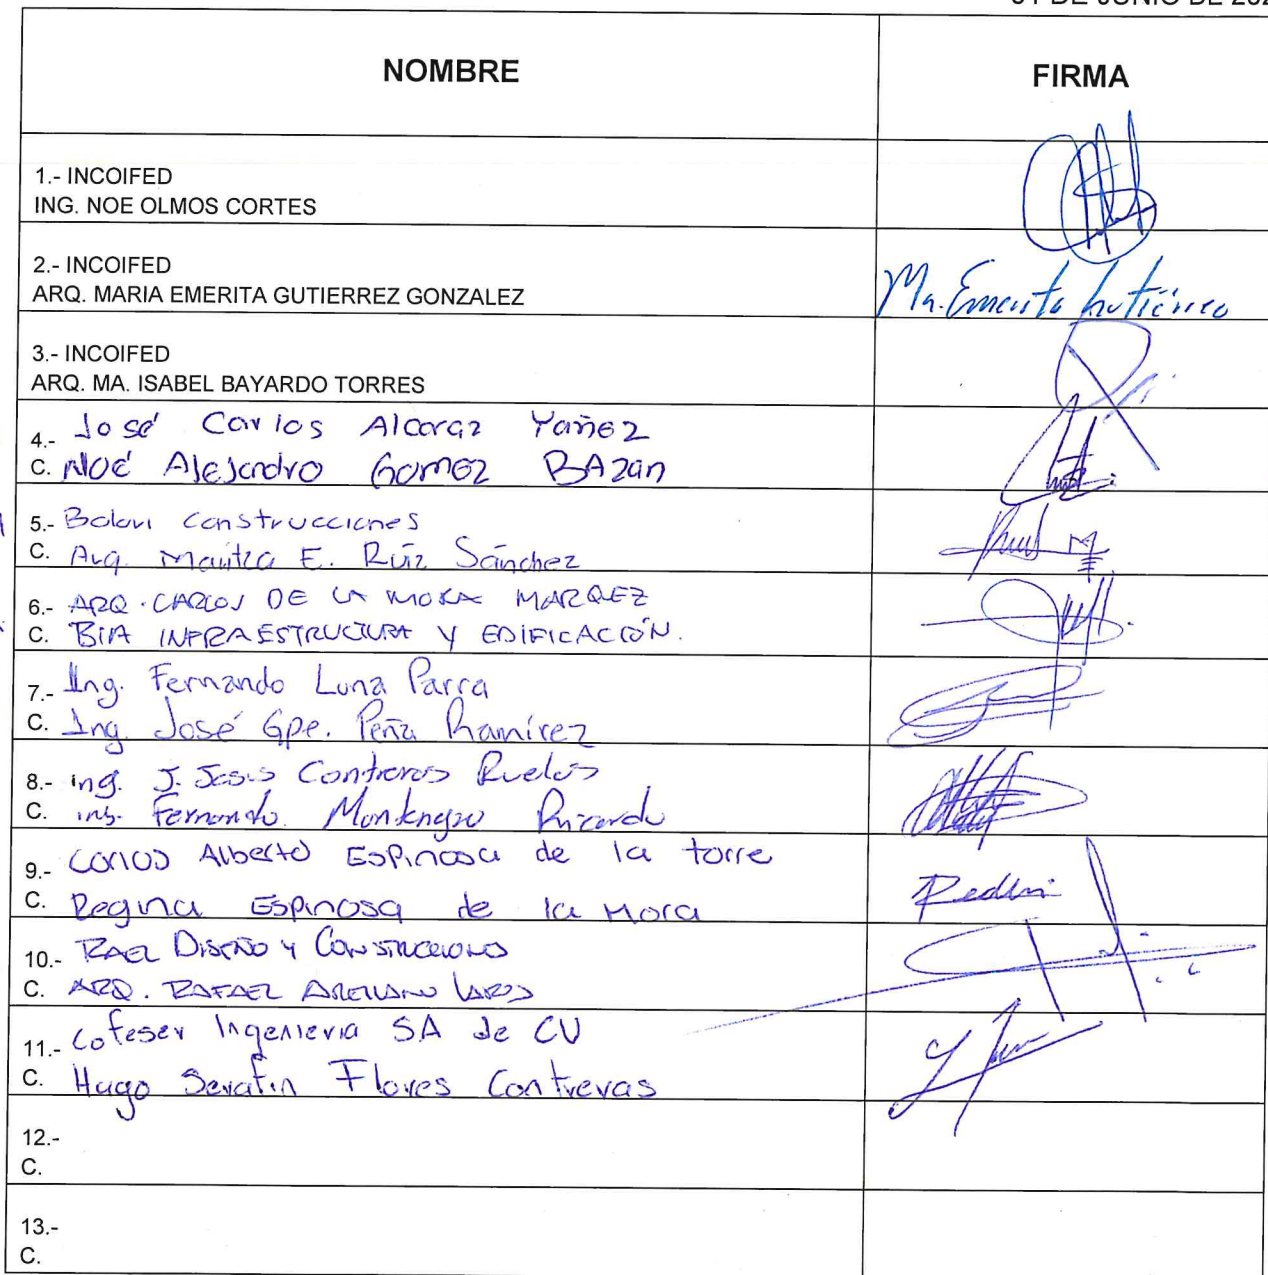 DE JUNIO DE
NOMBRE
FIRMA
1.- INCOIFED
ING. NOE OLMOS CORTES
2.- INCOIFED
ARQ. MARIA EMERITA GUTIERREZ GONZALEZ
Ma. Emerita Gutiérrez
3.- INCOIFED
ARQ. MA. ISABEL BAYARDO TORRES
4.- José Carlos Alcaraz Yañez
C. Noé Alejandro Gomez BAzan
5.- Construcciones
C. Arq. Maritza E. Ruíz Sánchez
6.- ARQ. CARLOS DE LA MORA MARQUEZ
C. BIA INFRAESTRUCTURA Y EDIFICACIÓN.
7.- Ing. Fernando Luna Parra
C. Ing. José Gpe. Peña Ramírez
8.- ing. J. Jesus Contreras Ruelas
C. ing. Fernando Montenegro Ricardo
9.- Carlos Alberto Espinosa de la torre
C. Regina Espinosa de la Mora
10.- RAEL DISEÑO Y CONSTRUCCIONES
C. ARQ. RAFAEL ARELLANO
11.- Cofeser Ingenieria SA de CV
C. Hugo Serafin Flores Contreras
12.-
C.
13.-
C.